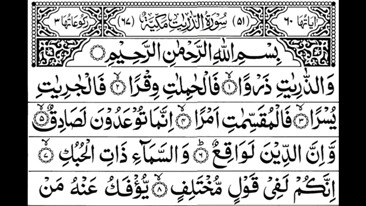 اٰیَاتُهَا ٦٠ (٥١) سُوْرَةُ الذّٰرِیٰتِ مَكِّیَّةٌ (٦٧) رُكُوْعَاتُهَا ٣
بِسْمِ اللّٰهِ الرَّحْمٰنِ الرَّحِیْمِ
وَالذّٰرِیٰتِ ذَرْوًا ۙ﴿١﴾ فَالْحٰمِلٰتِ وِقْرًا ۙ﴿٢﴾ فَالْجٰرِیٰتِ
یُسْرًا ۙ﴿٣﴾ فَالْمُقَسِّمٰتِ اَمْرًا ۙ﴿٤﴾ اِنَّمَا تُوْعَدُوْنَ لَصَادِقٌ ۙ﴿٥﴾
وَّ اِنَّ الدِّیْنَ لَوَاقِعٌ ؕ﴿٦﴾ وَالسَّمَآءِ ذَاتِ الْحُبُكِ ۙ﴿٧﴾
اِنَّكُمْ لَفِیْ قَوْلٍ مُّخْتَلِفٍ ۙ﴿٨﴾ یُّؤْفَكُ عَنْهُ مَنْ